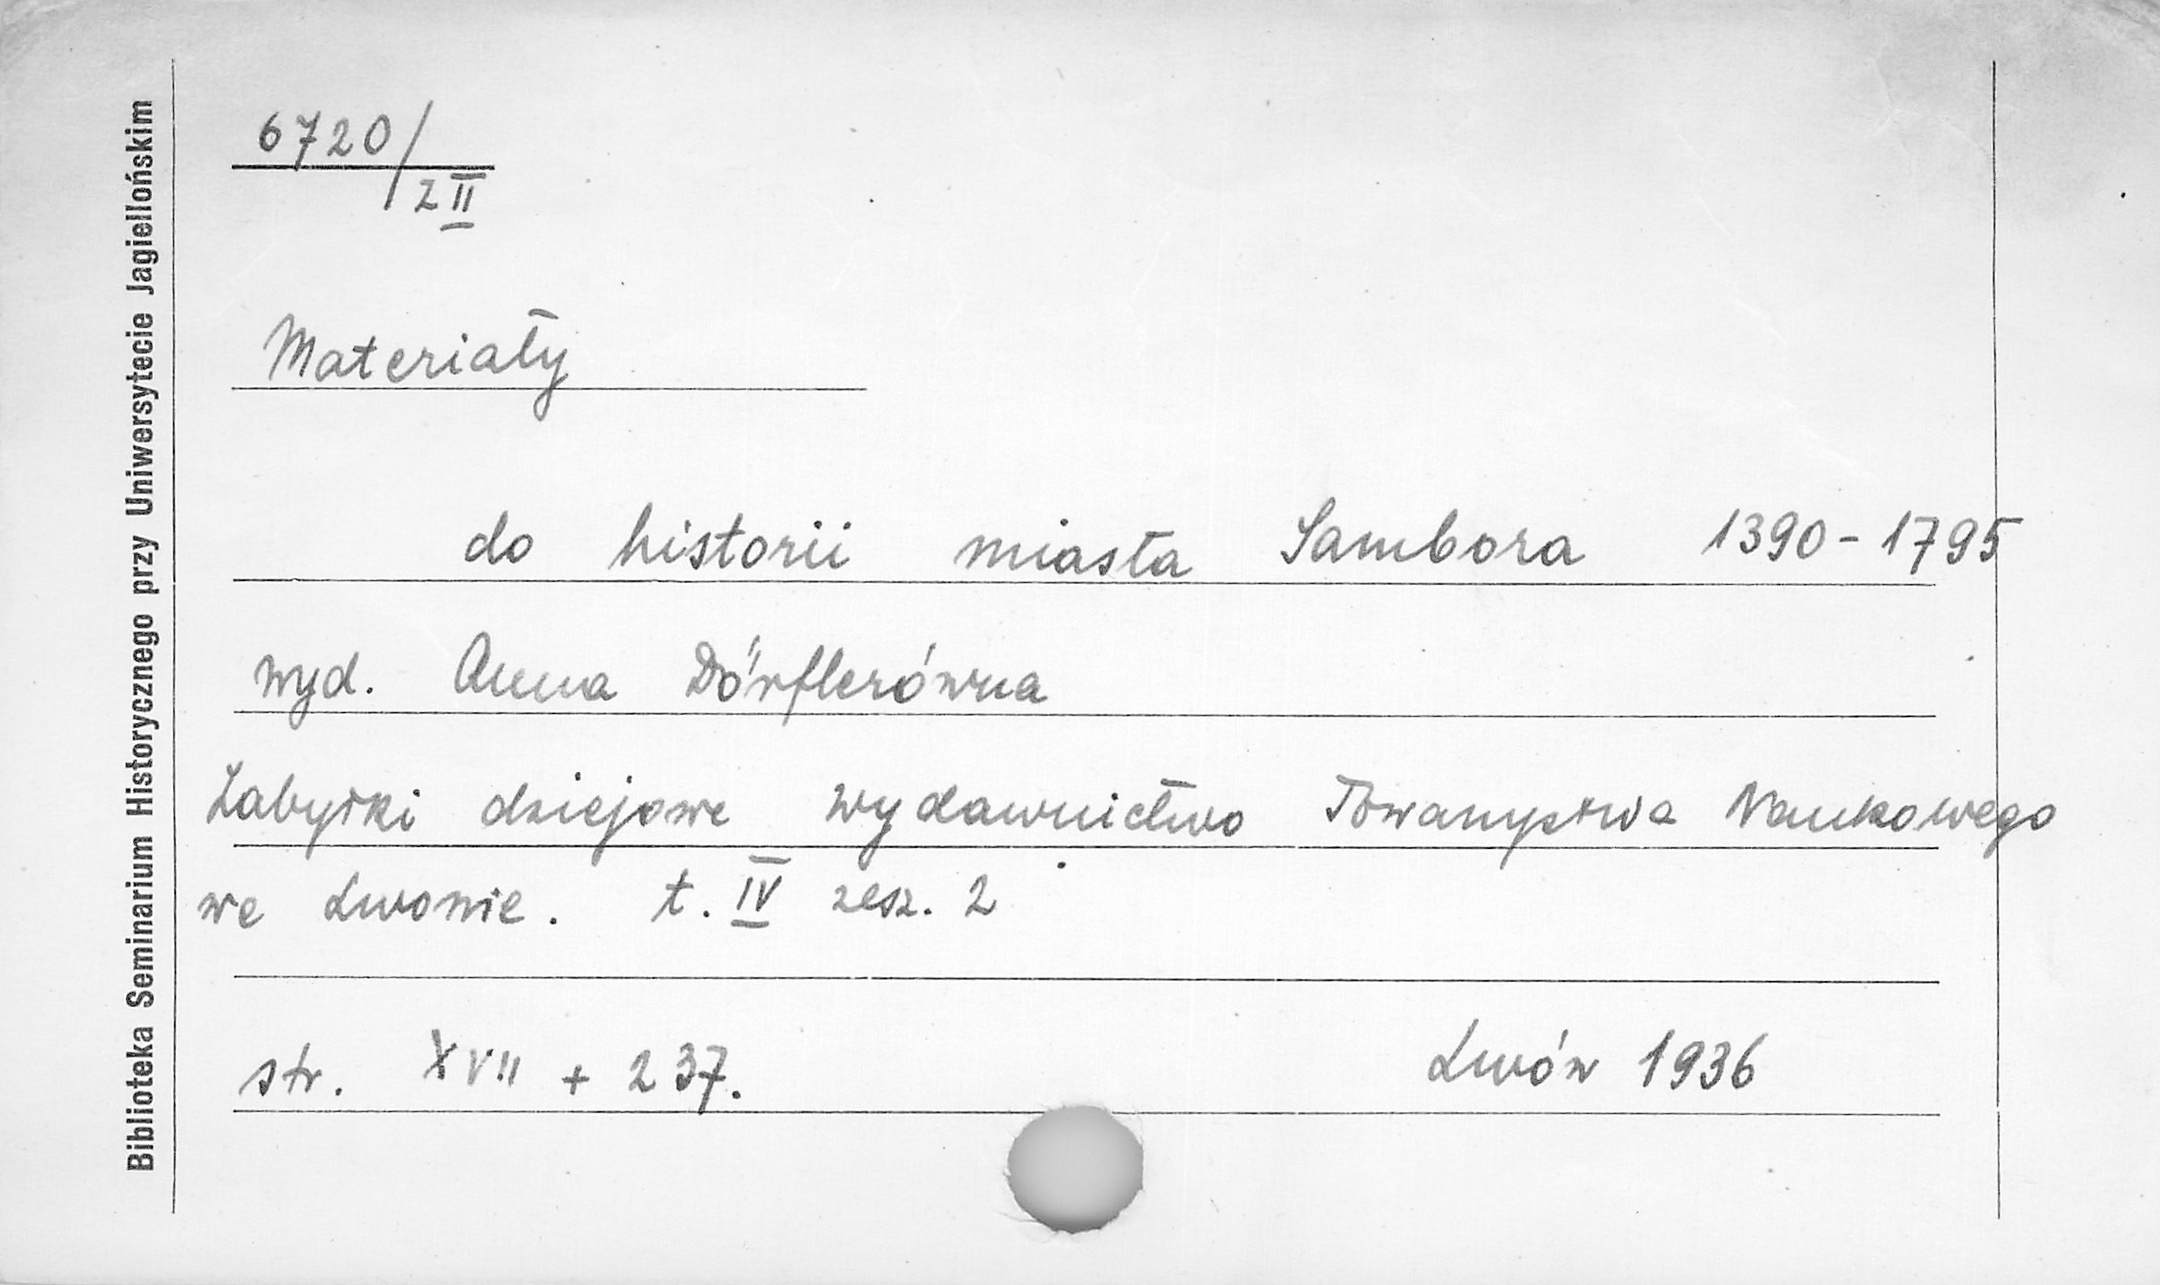 Biblioteka Seminarium Historycznego przy Uniwersytecie Jagiellońskim
6720/
2 II
Materiały
do historii miasta Sambora 1390-1795
wyd. Anna Dőrflerówna
Zabytki dziejowe wydawnictwo Towarzystwa Naukowego
we Lwowie. t. IV zesz. 2
str. XVII + 237. Lwów 1936